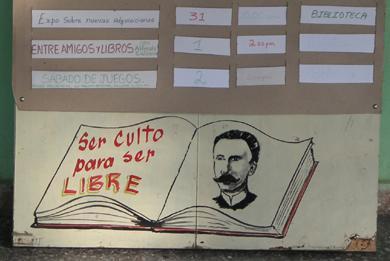 Expo Sobre nuevas Adquisiciones 31 BIBLIOTECA
ENTRE AMIGOS Y LIBROS 1 2:00pm
SABADO DE JUEGOS. 2
Ser Culto
para ser
LIBRE